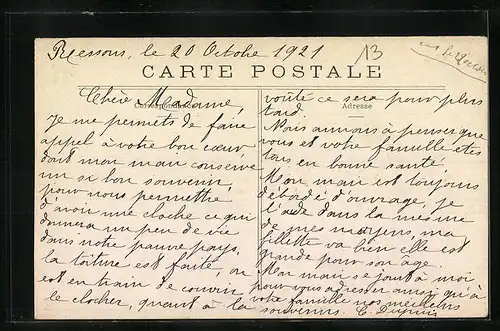 Ressons, le 20 Octobre 1921
13
CARTE POSTALE
Correspondance
Adresse
Chère Madame,
Je me permets de faire
appel à votre bon cœur
dont mon mari conserve
un si bon souvenir
pour nous permettre
d'avoir une cloche ce qui
donnera un peu de vie
dans notre pauvre pays,
la toiture est faite, on
est en train de couvrir
le clocher, quant à la
voûte ce sera pour plus
tard.
Nous aimons à penser que
vous et votre famille êtes
tous en bonne santé
Mon mari est toujours
débordé d'ouvrage, je
l'aide dans la mesure
de mes moyens, ma
fillette va bien elle est
grande pour son âge.
Mon mari se joint à moi
pour vous adresser ainsi qu'à
votre famille nos meilleurs
souvenirs. C. Dupuis